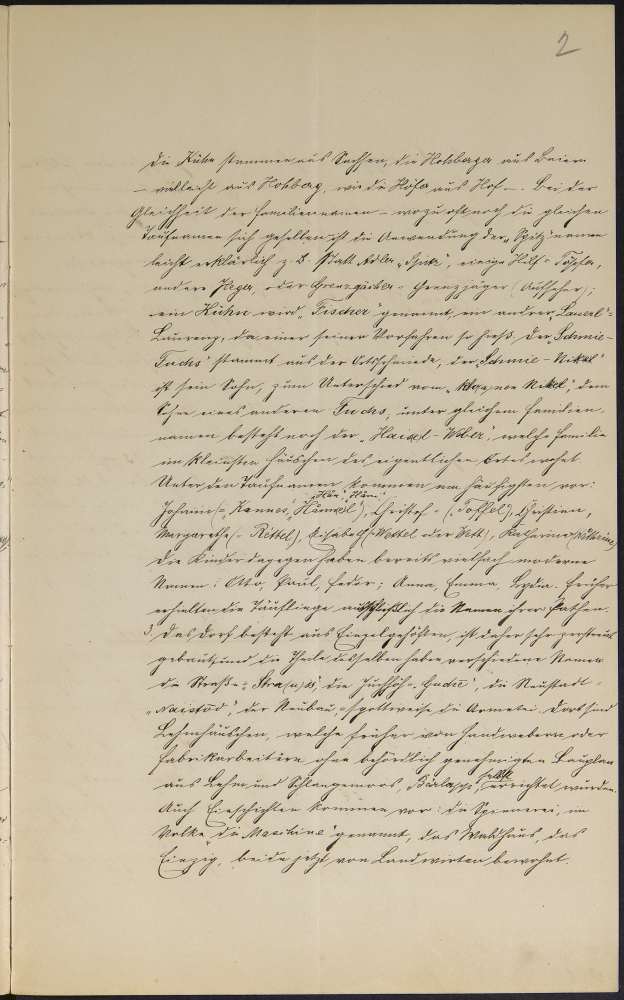 2
Die Kühn stammen aus Sachsen, die Hohberger aus Baiern
– vielleicht aus Hohberg, wie die Höfer aus Hof –. Bei der
Gleichheit der Familiennamen – wozu oft noch die gleichen
Taufnamen sich gesellen, ist die Anwendung der „Spitz"namen
leicht erklärlich z. B. statt Adler „ ", einige Hilf-
andere Heger, oder Grenzjäger (Aufseher);
ein Kühn wird „Fischer" genannt, ein andrer „Lauerl" =
Laurenz, da einer seiner Vorfahren so hieß. Der „Schmie-
Fuchs" stammt aus der Ortsschmiede, der „Schmie-Nikel"
ist sein Sohn, zum Unterschied vom „ Nikel", dem
Sohn eines anderen Fuchs; unter gleichem Familien-
namen besteht noch der „Haisel-Weber", welche Familie
im kleinsten Häuschen des eigentlichen Ortes wohnt.
Unter den Taufnamen kommen am häufigsten vor:
Johann (= Hannes, „Hansel"), Christof = („Toffel"), Christian,
Margarethe (= Rettel), Elisabeth (= Wettel oder Bett), Katharina
Die Kinder dagegen haben bereits vielfach moderne
Namen: Otto, Paul, Fedor; Anna, Emma, Lydia. Früher
erhielten die Täuflinge ausschließlich die Namen ihrer Pathen.
3. Das Dorf besteht aus Einzelgehöften, ist daher sehr zerstreut
gebaut, und die Theile desselben haben verschiedene Namen
die Straße = , die , die Neustadt =
„Naistod", der Neubau = spottweise die Armetei. Dort sind
Lehmhäuschen, welche früher von Handwebern oder
Fabrikarbeitern ohne behördlich genehmigten Bauplan
aus Lehm und Schlangenmoos, Bärlapp, selbst errichtet wurden.
Auch Einschichten kommen vor: die Spinnerei, im
Volke „die Maschine" genannt, das Waldhaus, das
Einzig, beide jetzt von Landwirten bewohnt.